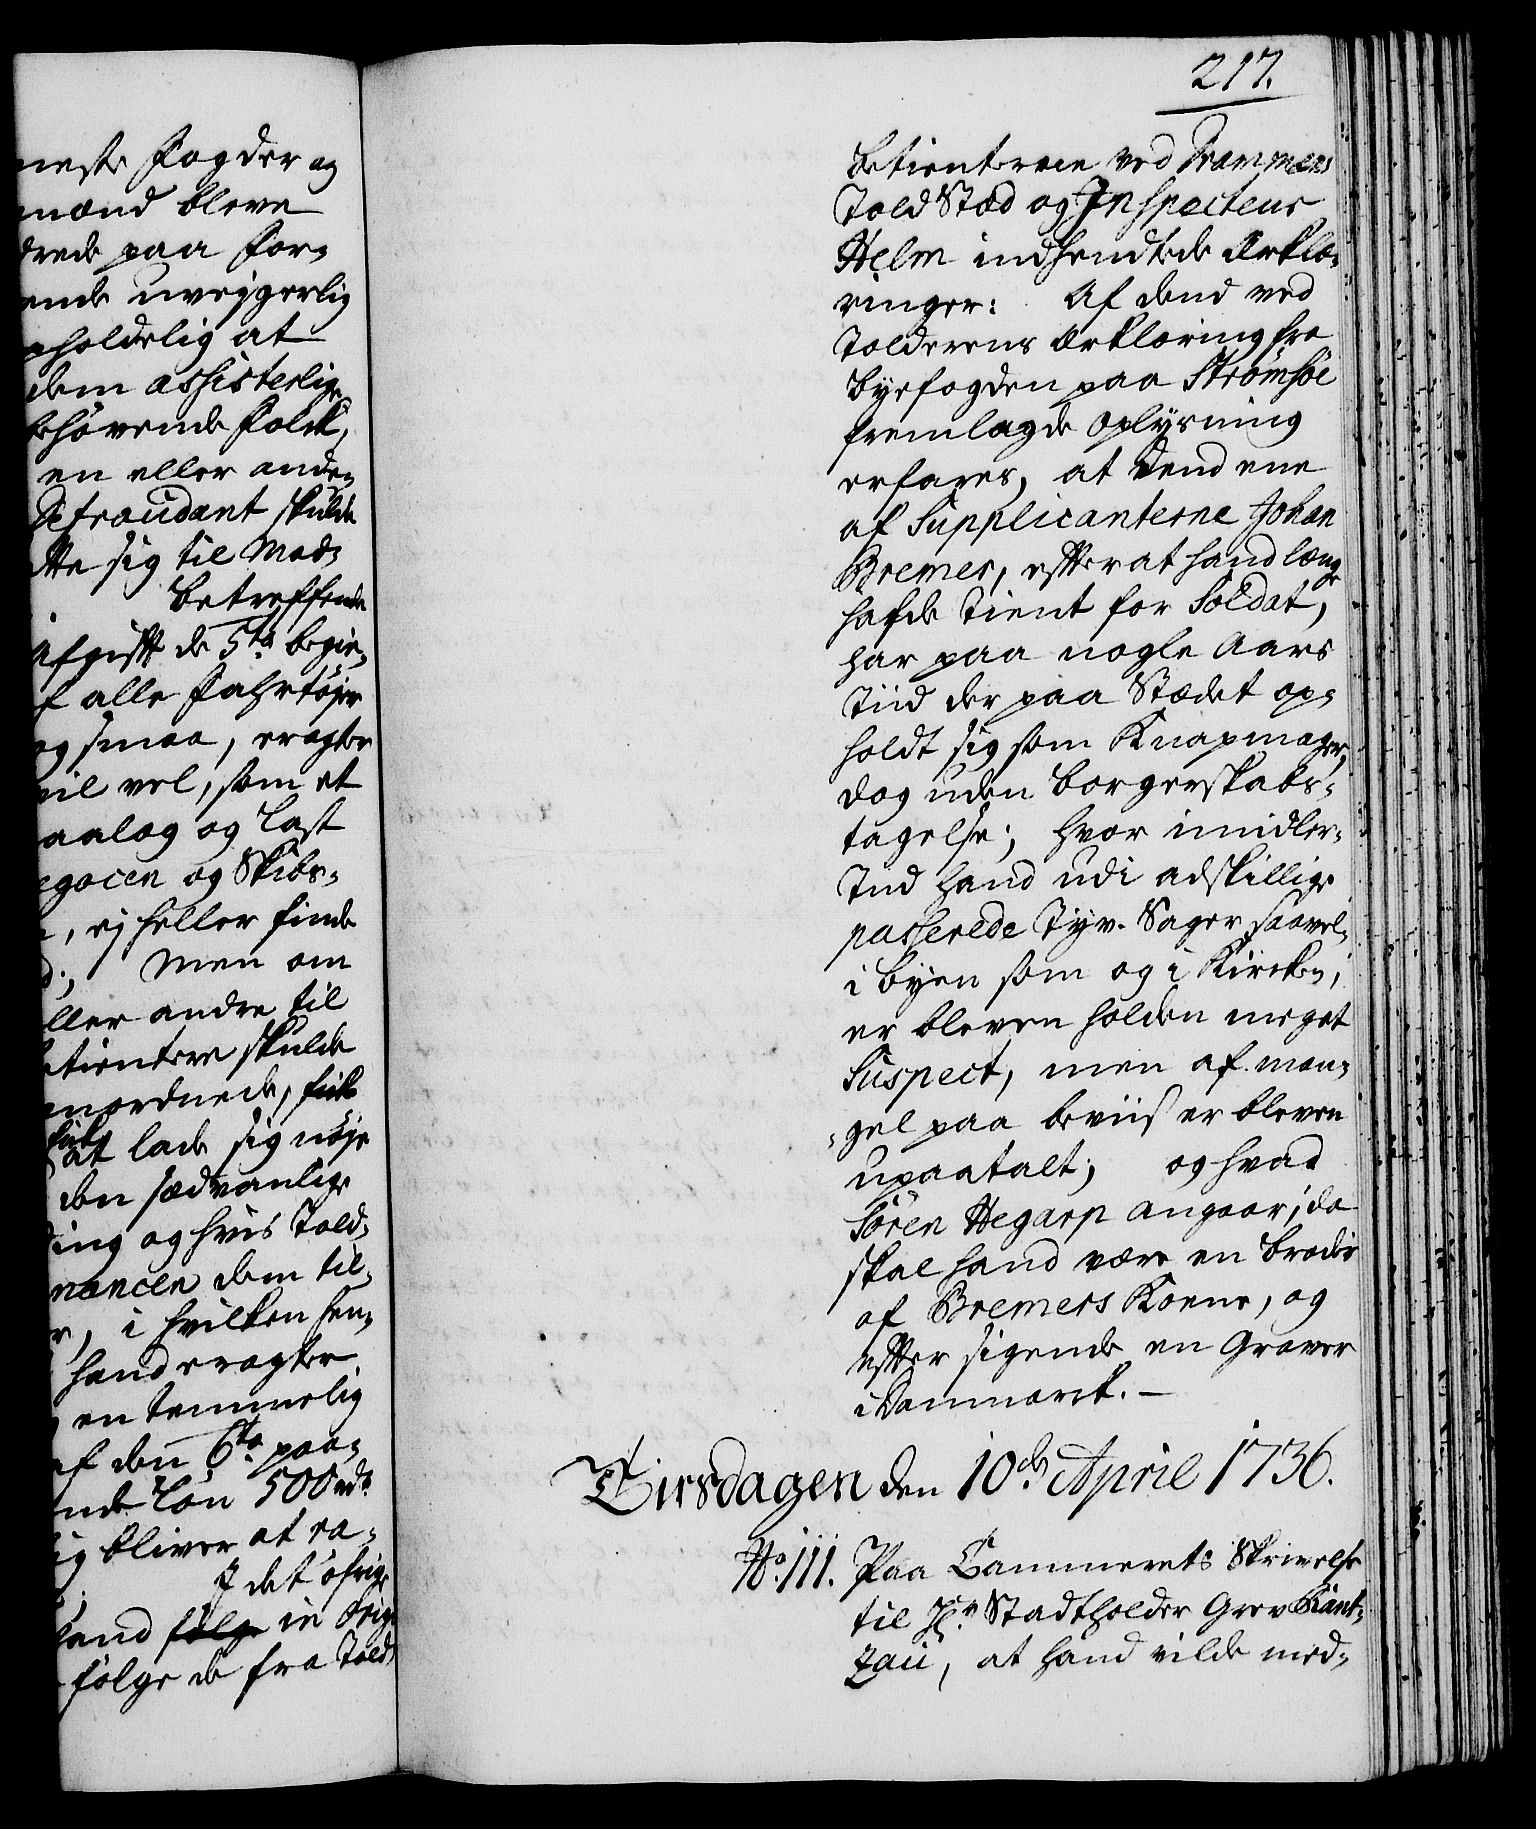 neste Fogder og
mænd bleve
drede paa For-
ende uveygerlig
pholdelig at
dem assisterlige
behövende Folck,
en eller anden
Defraudant skulde
tte sig til Mod-
Betreffende
Afgift de 5te begie-
f alle Fahrtöjer
og smaa, eragter
vil vel, som et
aalæg og Last
egocen og Skibs-
, ej heller finde
d; Men om
ller andre til
etientere skulde
nordnede,
at lade sig nöje
den sædvanlige
ing og hvis Told-
nancen dem til-
r, i hvilken hen-
hand eragter
en temmelig
af den 6te paa-
nde Lön 500 rdr
ig bliver at ra-
I det öfrige
Land fölge in Orig
fölge de fra Told
217.
betienterne ved Drammens
Told Stæd og Inspecteur
Helm indsendte Erklæ-
ringer: Af dend ved
Tolderens Erklæring fra
Byefogden paa Strömsöe
fremlagde Oplysning
erfares, at dend ene
af Supplicanterne Johan
Bremer, efter at hand længe
hafde tient for Soldat,
har paa nogle Aars
Tiid der paa Stædet op-
holdt sig som Knapmager,
dog uden Borgerskabs-
tagelse; hvor imidler-
Tiid hand udi adskillige
passerede Tyv-Sager saavel
i Byen som og i Kircken,
er bleven holden meget
Suspect, men af man-
gel paa beviis er bleven
upaatalt; og hvad
Sören Hegarp angaar, da
skal hand være en Broder
af Bremers Kone, og
efter sigende en Graver
i Danmarck. —
Tirsdagen den 10de April 1736.
No. 111. Paa Cammerets Skrivelse
til Hr. Stadtholder Grev Rant-
zau, at hand vilde med-